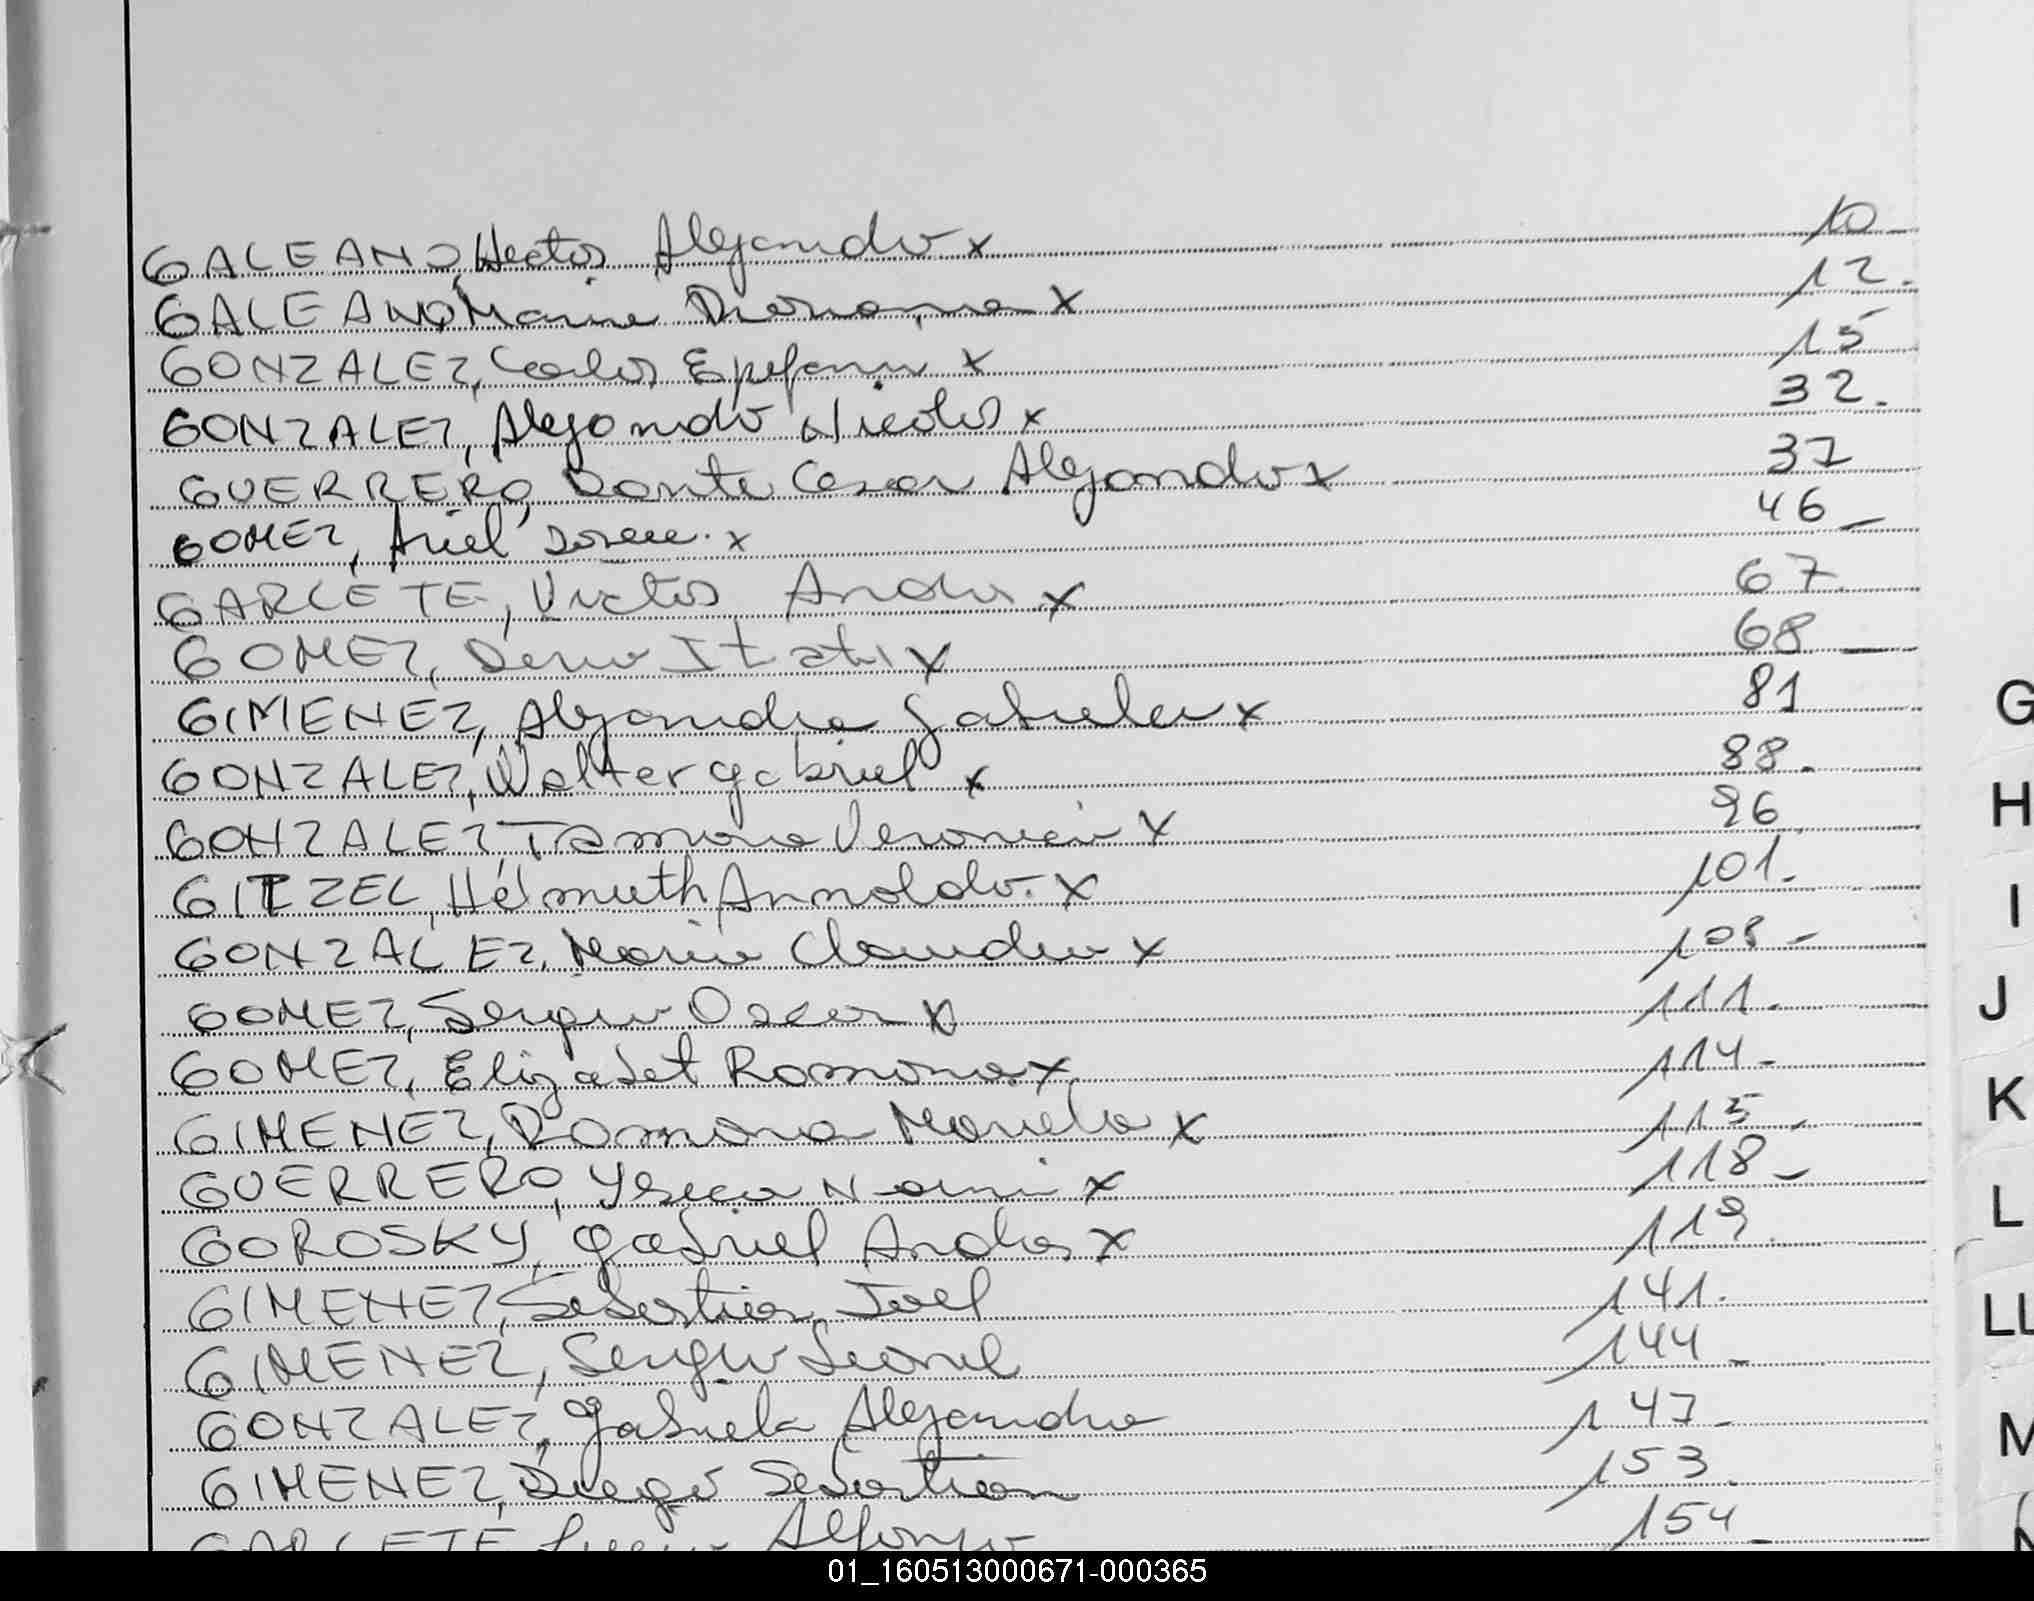 GALEANO, Hector Alejandro x 10
GALEANO, Maria x 12.
GONZALEZ, Carlos Epefanio x 15
GONZALEZ, Alejandro Nicolas x 32.
GUERRERO, Dante Cesar Alejandro x 37
GOMEZ, Ariel x 46
GARCETE, Victor Andres x 67
GOMEZ, Itati x 68
GIMENEZ, Alejandra Gabriela x 81
GONZALEZ, Walter gabriel x 88.
GONZALEZ, Tamara Veronica x 96
GITZEL, Helmuth Arnoldo. x 101.
GONZALEZ, Maria Claudia x 108 -
GOMEZ, Sergio Oscar x 111.
GOMEZ, Elizabet Ramona x 114 -
GIMENEZ, Ramona Mariela x 115 -
GUERRERO, Yesica Noemi x 118 -
GOROSKY, gabriel Andres x 119.
GIMENEZ, Sebastian Joel 141.
GIMENEZ, Sergio Leonel 144 -
GONZALEZ, Gabriela Alejandra 147 -
GIMENEZ, Diego Sebastian 153.
GARCETE Alfonso 154 -
G
H
I
J
K
L
LL
M
01_160513000671-000365